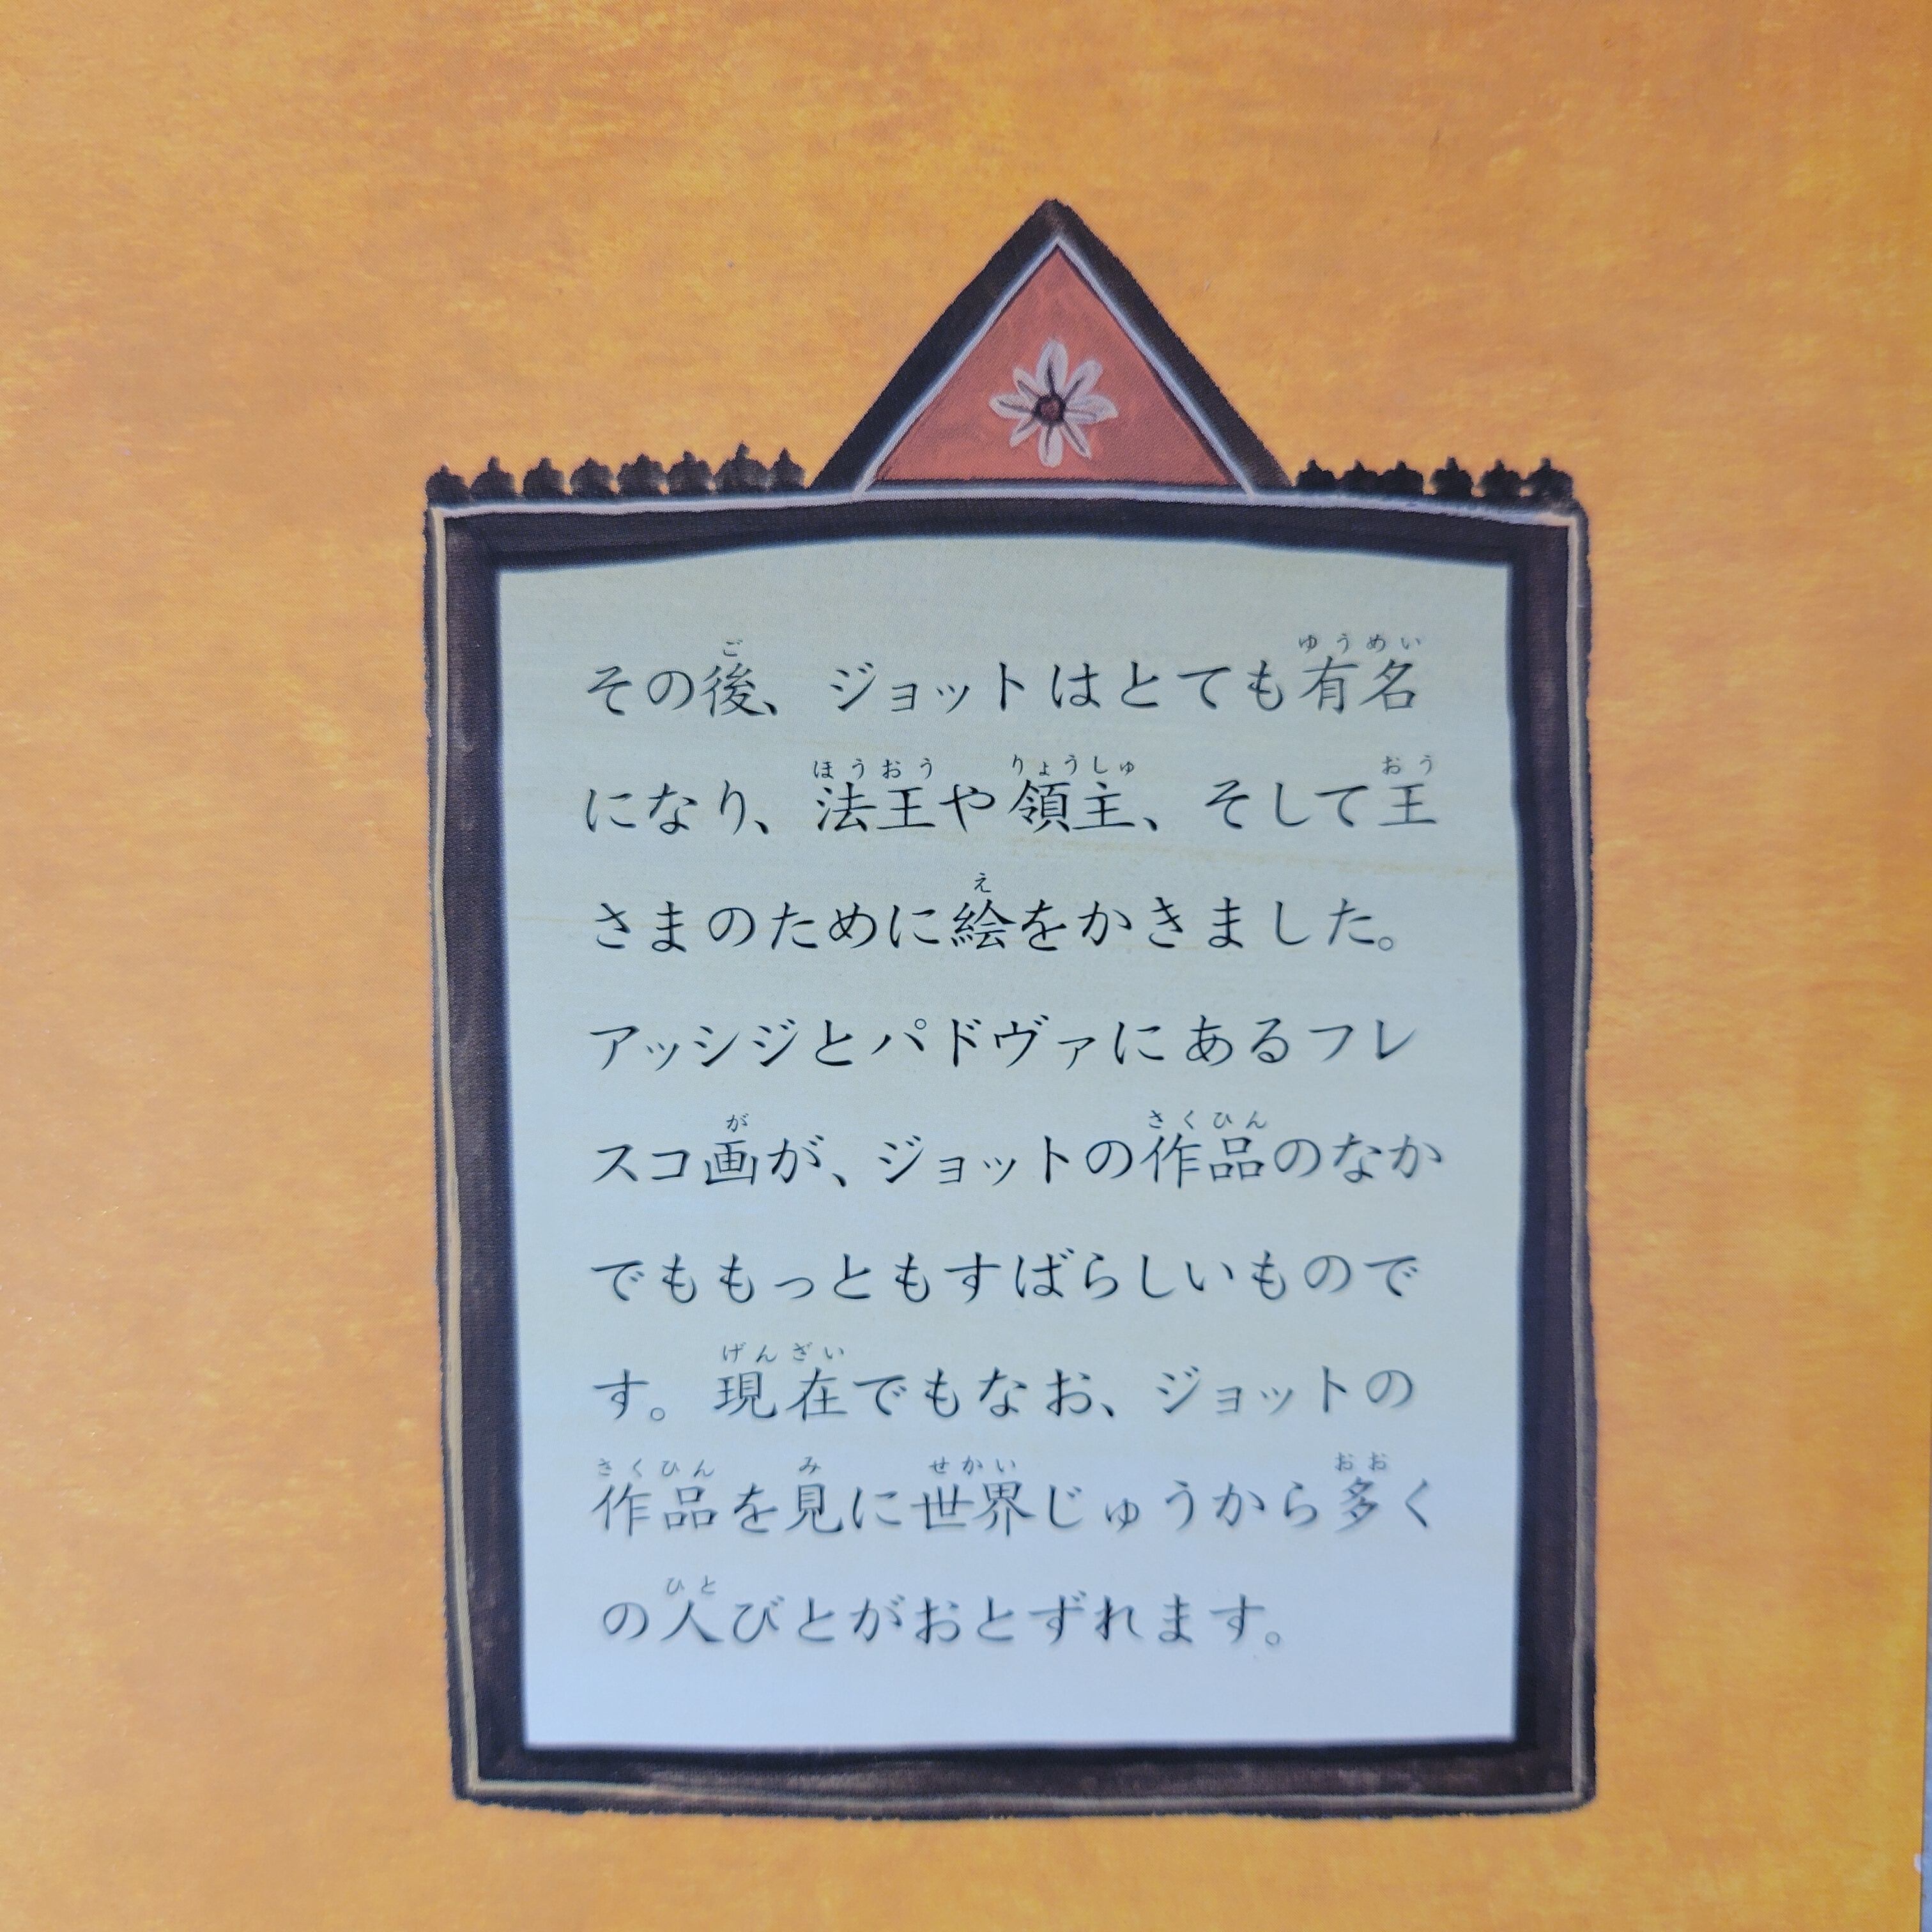 その後、ジョットはとても有名
になり、法王や領主、そして王
さまのために絵をかきました。
アッシジとパドヴァにあるフレ
スコ画が、ジョットの作品のなか
でももっともすばらしいもので
す。現在でもなお、ジョットの
作品を見に世界じゅうから多く
の人びとがおとずれます。